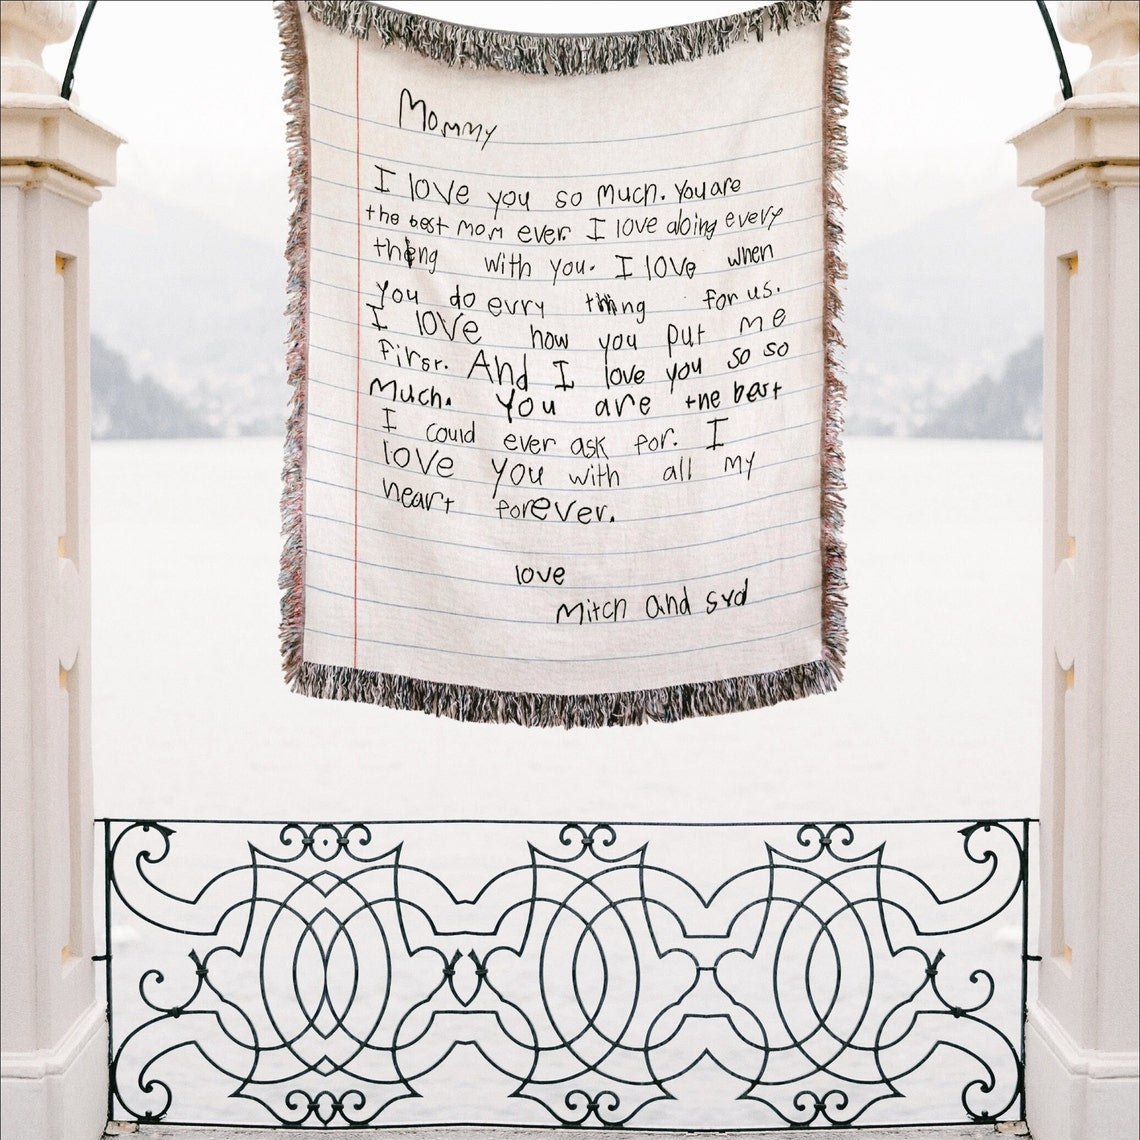 Mommy
I love you so much. You are
the best mom ever. I love doing every
thing with you. I love when
you do evry thing for us.
I love how you put me
first. And I love you so so
Much. You are the best
I could ever ask for. I
love you with all my
heart forever.
love
Mitch and syd